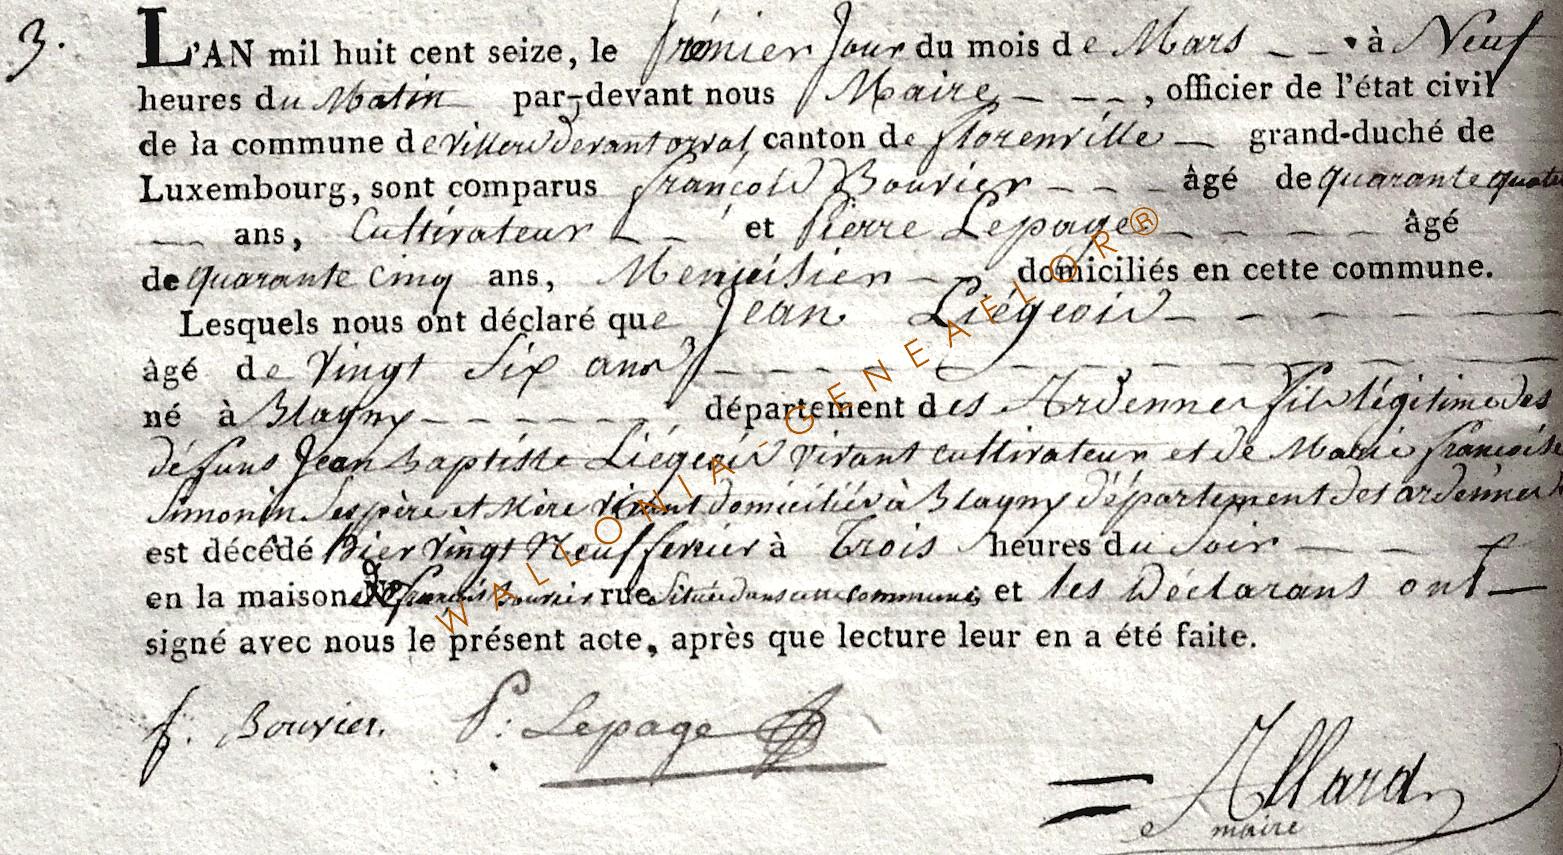 3.
L'AN mil huit cent seize, le premier Jour du mois de Mars à Neuf
heures du Matin par-devant nous Maire, officier de l'état civil
de la commune de Villers devant orval, canton de florenville grand-duché de
Luxembourg, sont comparus françois Bouvier âgé de quarante quatre
ans, Cultivateur et Pierre Lepage âgé
de quarante cinq ans, Menuisier domiciliés en cette commune.
Lesquels nous ont déclaré que Jean Liégeois
âgé de vingt six ans
né à Blagny département des Ardennes fils légitime des
défuns Jean baptiste Liégeois vivant cultivateur et de Marie françoise
Simonin ses père et Mère vivant domiciliés à Blagny département des ardennes
est décédé hier vingt Neuf fevrier à Trois heures du soir
en la maison de françois bouvier rue située dans cette commune, et les Déclarans ont
signé avec nous le présent acte, après que lecture leur en a été faite.
f. Bouvier. P. Lepage
Allard
maire
WALLONIA-GENEAELOR®